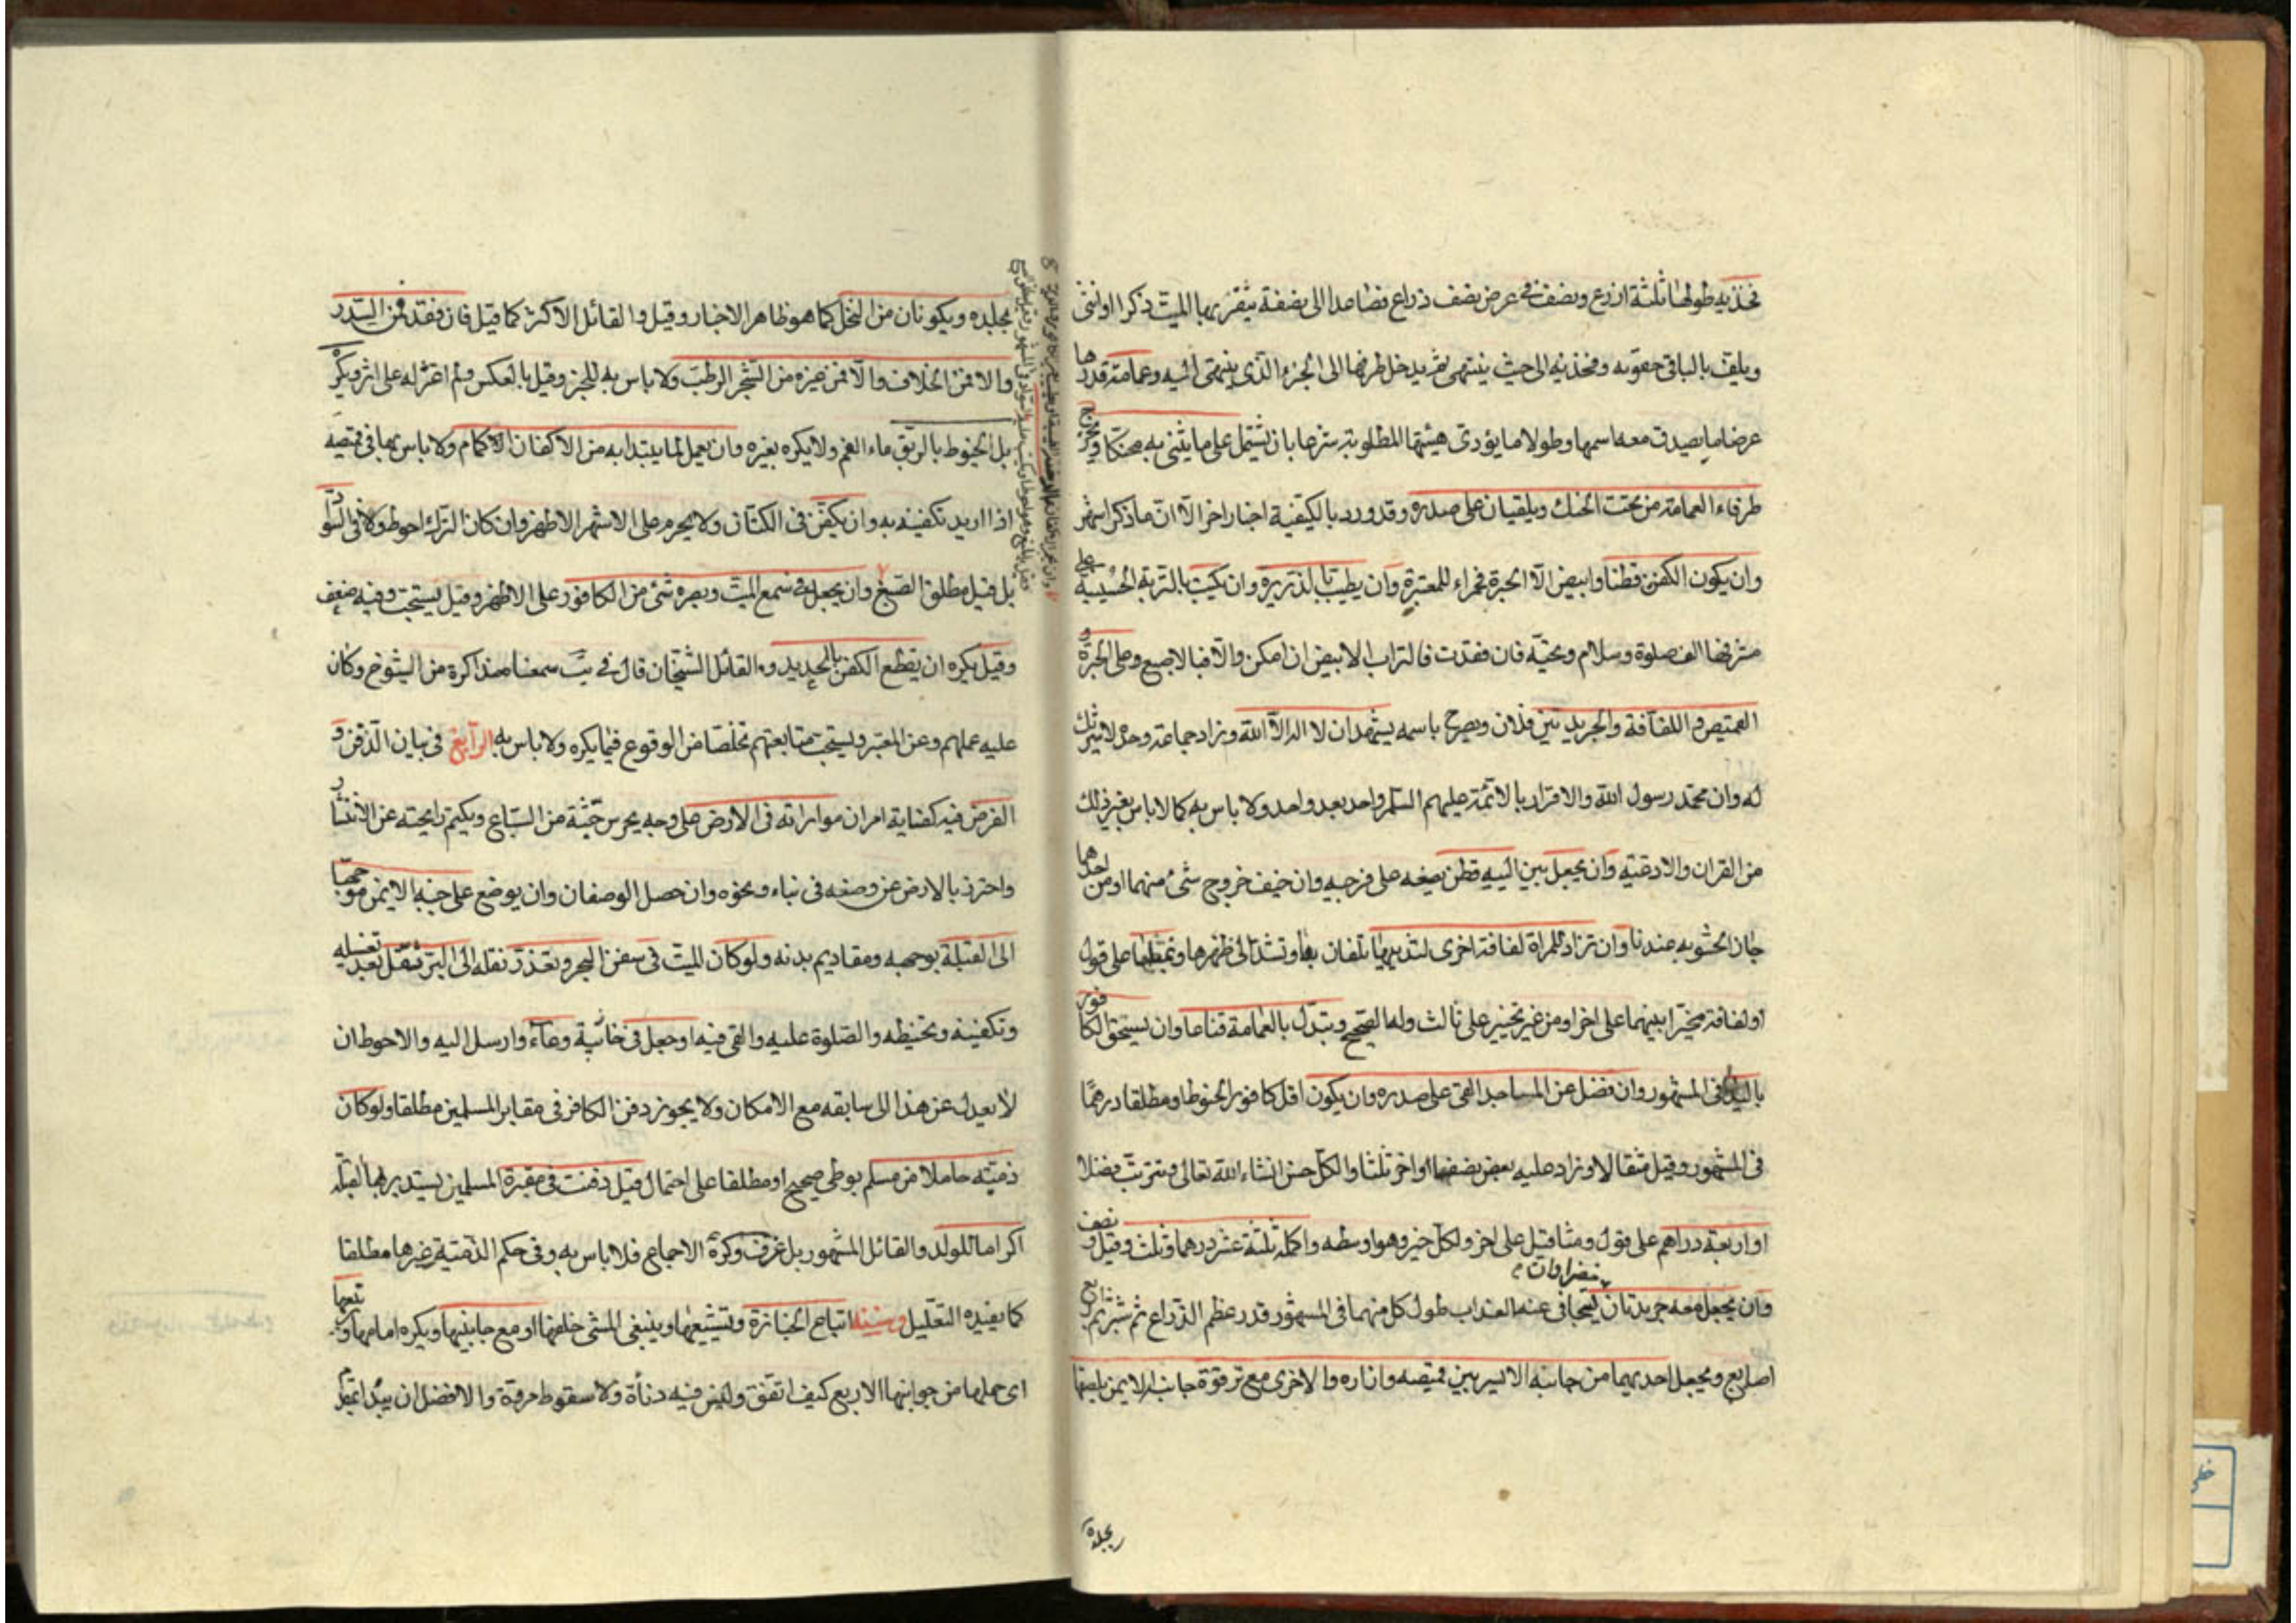 فخذيه طولها ثلثة اذرع ونصف في عرض نصف ذراع فصاعدا الى نصفه يثفر بها الميت ذكرا او انثى
ويلف بالباقي حقويه وفخذيه الى حيث ينتهي ثم يدخل طرفها الى الجزء الذي ينتهي اليه وعمامته قدرها
عرضا ما يصدق معه اسمها وطولا ما يؤدى هيئتها المطلوبة شرعا بان يشتمل على ما يثنى به محنكا ويخرج
طرفاء العمامة من تحت الحنك ويلقيان على صدره وقد ورد بالكيفية اخبار اخر الا ان ما ذكر اشهر
وان يكون الكفن قطنا وابيض الا الحبرة فحمراء للمعتبرة وان يطيب بالذريرة وان يكتب بالتربة الحسينية على
مشرفها الف صلوة وسلام وتحية فان فقدت فالتراب الابيض ان امكن والا فبالاصبع وعلى الحبرة و
القميص واللفافة والجريدتين فلان ويصرح باسمه يشهد ان لا اله الا الله وزاد جماعة وحده لا شريك
له وان محمد رسول الله والاقرار بالائمة عليهم السلم واحد بعد واحد ولا باس به كما لا باس بغير ذلك
من القران والادعية وان يجعل بين اليتيه قطن يضعه على فرجيه وان خيف خروج شئ منهما او من احدهما
جاز الحشو به عندنا وان تزاد للمراة لفافة اخرى لثدييها تلفان بها وتشد الى ظهرها ونمطا على قول
او لفافة مخيرا بينهما على اخر او من غير تخيير على ثالث ولها الصحيح ويبدل بالعمامة قناعا وان يسحق الكافور
باليد في المشهور وان فضل عن المساجد القى على صدره وان يكون اقل كافور الحنوط او مطلقا درهما
في المشهور وقيل مثقالا وزاد عليه بعض نصفها واخر ثلثا والكل حسن انشاء الله تعالى ويترتب فضلا
او اربعة دراهم على قول ومثاقيل على اخر ولكل خبر وهو اوسطه واكمله ثلثة عشر درهما وثلث وقيل ونصف
خضراوان
وان يجعل معه جريدتان ليتجافى عنه العذاب طول كل منهما في المشهور قدر عظم الذراع ثم شبر ثم اربع
اصابع ويجعل احديهما من جانبه الايسر بين قميصه وازاره والاخرى مع ترقوة جانبه الايمن يلصقها
بجلده
بجلده ويكونان من النخل كما هو ظاهر الاخبار وقيل والقائل الاكثر كما قيل فان فقد فمن السدر
والا فمن الخلاف والا فمن غيره من الشجر الرطب ولا باس به للعجز وقيل بالعكس ولم اعثر له على اثر ويكره
بل الحنوط بالريق ماء الفم ولا يكره بغيره وان يعمل لما يبتدا به من الاكفان الاكمام ولا باس بها في قميصه
اذا اريد تكفينه به وان يكفن في الكتان ولا يحرم على الاشهر الاظهر وان كان الترك احوط ولا في السواد
بل قيل مطلق الصبغ وان يجعل في سمع الميت وبصره شئ من الكافور على الاظهر وقيل يستحب وفيه ضعف
وقيل يكره ان يقطع الكفن بالحديد والقائل الشيخان قال في يب سمعنا مذاكرة من الشيوخ وكان
عليه عملهم وعن المعتبر ويستحب متابعتهم تخلصا من الوقوع فيما يكره ولا باس به الرابع في بيان الدفن و
الفرض فيه كفاية امران مواراته في الارض على وجه يحرس جثته من السباع ويكتم رايحته عن الانتشار
واحترز بالارض عن وضعه في بناء ونحوه وان حصل الوصفان وان يوضع على جنبه الايمن موجها
الى القبلة بوجهه ومقاديم بدنه ولو كان الميت في سفن البحر وتعذر نقله الى البر ثقل بعد تغسيله
وتكفينه وتحنيطه والصلوة عليه والقى فيه او جعل في خابية وعاء وارسل اليه والاحوط ان
لا يعدل عن هذا الى سابقه مع الامكان ولا يجوز دفن الكافر في مقابر المسلمين مطلقا ولو كان
ذمية حاملا من مسلم بوطى صحيح او مطلقا على احتمال قيل دفنت في مقبرة المسلمين يستدبر بها القبلة
اكراما للولد والقائل المشهور بل عن ف وكره الاجماع فلا باس به وفي حكم الذمية غيرها مطلقا
كما يفيده التعليل وسننه اتباع الجنازة وتشييعها وينبغي المشي خلفها او مع جانبيها ويكره امامها وتربيعها
اى حملها من جوانبها الاربع كيف اتفق وليس فيه دناة ولا سقوط مروة والافضل ان يبدا بمقدم